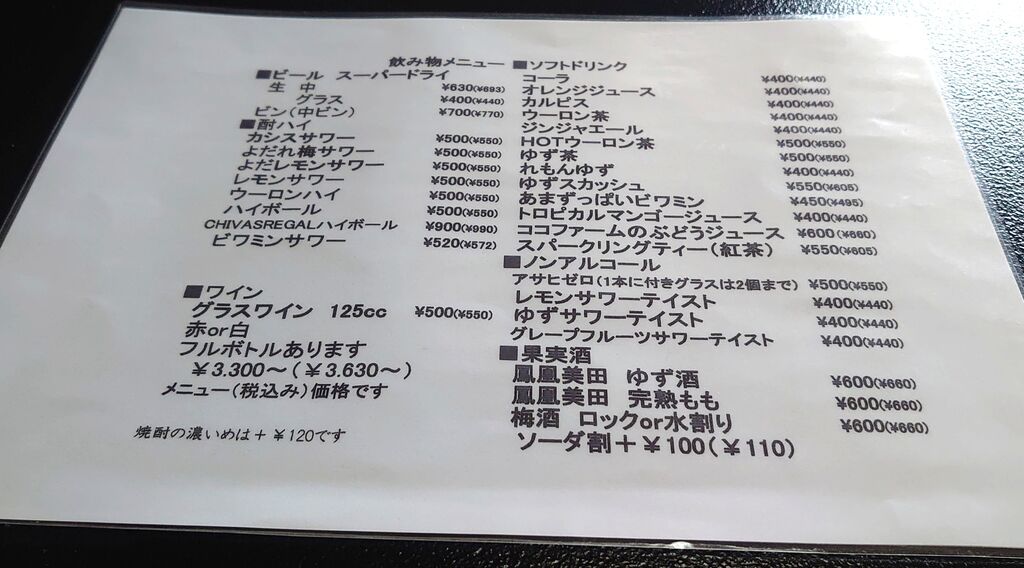 飲み物メニュー
■ビール スーパードライ
生 中 ¥630(¥693)
グラス ¥400(¥440)
ビン(中ビン) ¥700(¥770)
■酎ハイ
カシスサワー ¥500(¥550)
よだれ梅サワー ¥500(¥550)
よだレモンサワー ¥500(¥550)
レモンサワー ¥500(¥550)
ウーロンハイ ¥500(¥550)
ハイボール ¥500(¥550)
CHIVASREGALハイボール ¥900(¥990)
ビワミンサワー ¥520(¥572)
■ワイン
グラスワイン 125cc ¥500(¥550)
赤or白
フルボトルあります
¥3.300～(¥3.630～)
メニュー(税込み)価格です
焼酎の濃いめは＋¥120です
■ソフトドリンク
コーラ ¥400(¥440)
オレンジジュース ¥400(¥440)
カルピス ¥400(¥440)
ウーロン茶 ¥400(¥440)
ジンジャエール ¥400(¥440)
HOTウーロン茶 ¥500(¥550)
ゆず茶 ¥500(¥550)
れもんゆず ¥400(¥440)
ゆずスカッシュ ¥550(¥605)
あまずっぱいビワミン ¥450(¥495)
トロピカルマンゴージュース ¥400(¥440)
ココファームのぶどうジュース ¥600(¥660)
スパークリングティー(紅茶) ¥550(¥605)
■ノンアルコール
アサヒゼロ(1本に付きグラスは2個まで) ¥500(¥550)
レモンサワーテイスト ¥400(¥440)
ゆずサワーテイスト ¥400(¥440)
グレープフルーツサワーテイスト ¥400(¥440)
■果実酒
鳳凰美田 ゆず酒 ¥600(¥660)
鳳凰美田 完熟もも ¥600(¥660)
梅酒 ロックor水割り ¥600(¥660)
ソーダ割＋¥100(¥110)